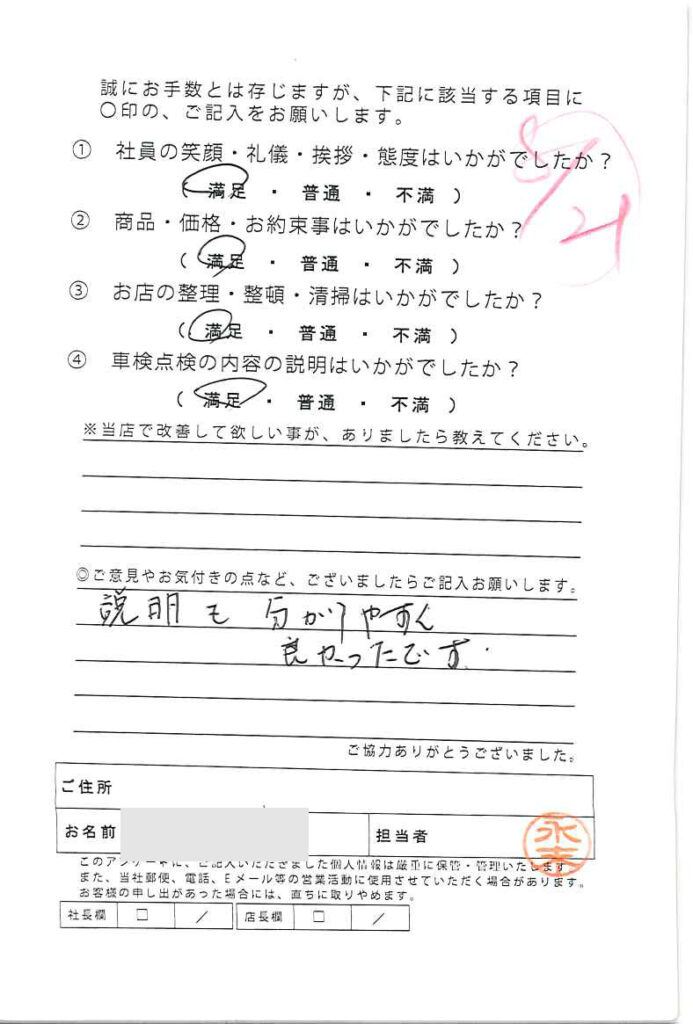 誠にお手数とは存じますが、下記に該当する項目に
〇印の、ご記入をお願いします。
① 社員の笑顔・礼儀・挨拶・態度はいかがでしたか？
( 満足 ・ 普通 ・ 不満 )
② 商品・価格・お約束事はいかがでしたか？
( 満足 ・ 普通 ・ 不満 )
③ お店の整理・整頓・清掃はいかがでしたか？
( 満足 ・ 普通 ・ 不満 )
④ 車検点検の内容の説明はいかがでしたか？
( 満足 ・ 普通 ・ 不満 )
※当店で改善して欲しい事が、ありましたら教えてください。
◎ご意見やお気付きの点など、ございましたらご記入お願いします。
説明も 分かりやすく
良かったです.
ご協力ありがとうございました。
ご住所
お名前 担当者
このアンケートに、ご記入いただきました個人情報は厳重に保管・管理いたします
また、当社郵便、電話、Eメール等の営業活動に使用させていただく場合があります。
お客様の申し出があった場合には、直ちに取りやめます。
社長欄 □ / 店長欄 □ /